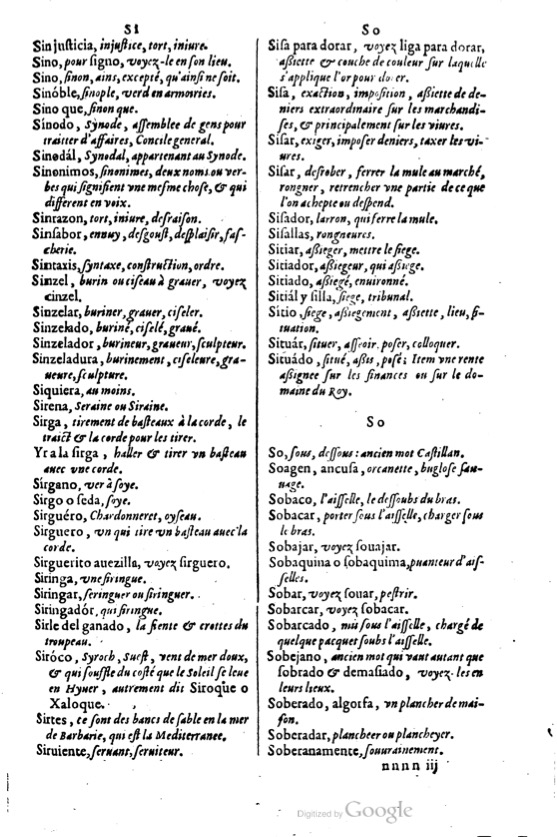 SI
Sin justicia, injustice, tort, iniure.
Sino, pour signo, voyez-le en son lieu.
Sino, sinon, ains, excepté, qu'ainsi ne soit.
Sinóble, sinople, verd en armoiries.
Sino que, sinon que.
Sínodo, Synode, assemblee de gens pour
traitter d'affaires, Concile general.
Sinodál, Synodal, appartenant au Synode.
Sinonimos, sinonimes, deux noms ou ver-
bes qui signifient vne mesme chose, & qui
different en voix.
Sinrazon, tort, iniure, desraison.
Sinsabor, ennuy, desgoust, desplaisir, fas-
cherie.
Sintaxis, syntaxe, construction, ordre.
Sinzel, burin ou ciseau à grauer, voyez
cinzel.
Sinzelar, buriner, grauer, ciseler.
Sinzelado, buriné, ciselé, graué.
Sinzelador, burineur, graueur, sculpteur.
Sinzeladura, burinement, ciseleure, gra-
ueure, sculpture.
Siquiera, au moins.
Sirena, Seraine ou Siraine.
Sirga, tirement de basteaux à la corde, le
traict & la corde pour les tirer.
Yr a la sirga, haller & tirer vn basteau
auec vne corde.
Sirgano, ver à soye.
Sirgo o seda, soye.
Sirguéro, Chardonneret, oyseau.
Sirguero, vn qui tire vn basteau auec la
corde.
Sirguerito auezilla, voyez sirguero.
Siringa, vne siringue.
Siringar, seringuer ou siringuer.
Siringadór, qui siringue.
Sirle del ganado, la fiente & crottes du
troupeau.
Siróco, Syroch, Suest, vent de mer doux,
& qui souffle du costé que le Soleil se leue
en Hyuer, autrement dit Siroque o
Xaloque.
Sirtes, ce sont des bancs de sable en la mer
de Barbarie, qui est la Mediterranee.
Siruiente, seruant, seruiteur.
So
Sisa para dorar, voyez liga para dorar,
assiette & couche de couleur sur laquelle
s'applique l'or pour dorer.
Sisa, exaction, imposition, assiette de de-
niers extraordinaire sur les marchandi-
ses, & principalement sur les viures.
Sisar, exiger, imposer deniers, taxer les vi-
ures.
Sisar, desrober, ferrer la mule au marché,
rongner, retrencher vne partie de ce que
l'on achepte ou despend.
Sisador, larron, qui ferre la mule.
Sisallas, rongneures.
Sitiar, assieger, mettre le siege.
Sitiador, assiegeur, qui assiege.
Sitiado, assiegé, enuironné.
Sitiál y silla, siege, tribunal.
Sitio siege, assiegement, assiette, lieu, si-
tuation.
Situár, situer, asseoir, poser, colloquer.
Situádo, situé, assis, posé; Item vne rente
assignee sur les finances ou sur le do-
maine du Roy.
So
So, sous, dessous: ancien mot Castillan.
Soagen, ancusa, orcanette, buglose sau-
uage.
Sobaco, l'aisselle, le dessoubs du bras.
Sobacar, porter sous l'aisselle, charger sous
le bras.
Sobajar, voyez souajar.
Sobaquina o sobaquima, puanteur d'ais-
selles.
Sobar, voyez souar, pestrir.
Sobarcar, voyez sobacar.
Sobarcado, mis sous l'aisselle, chargé de
quelque pacquet soubs l'aisselle.
Sobejano, ancien mot qui vaut autant que
sobrado & demasiado, voyez-les en
leurs lieux.
Soberado, algorfa, vn plancher de mai-
son.
Soberadar, plancheer ou plancheyer.
Soberanamente, souurainement.
nnnn iij
Digitized by Google